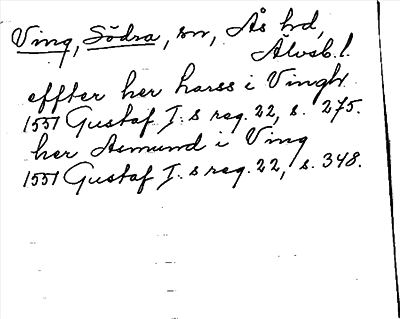 Ving, Södra, sn, Ås hd,
Älvsb.l.
effter her harss i Vingh
1551 Gustaf I:s reg. 22, s. 275.
her Asmund i Ving
1551 Gustaf I:s reg. 22, s. 348.